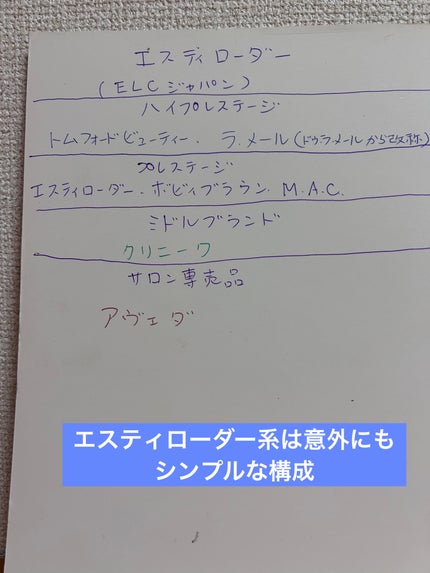 エスティローダー
(ELCジャパン)
ハイプレステージ
トムフォードビューティー. ラ.メール(ドゥラメールから改称)
プレステージ
エスティローダー.ボビィブラウン. M.A.C.
ミドルブランド
クリニーク
サロン専売品
アヴェダ
エスティローダー系は意外にも
シンプルな構成